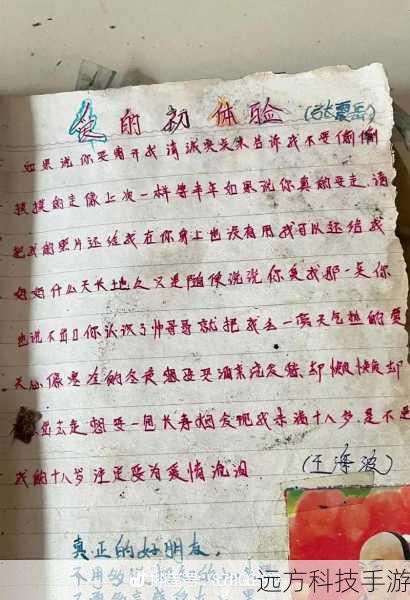 爱的初体验 (张震岳)
如果说你要离开我请诚实点来告诉我不要偷偷
摸摸的走像上次一样等半年如果说你真的要走 请
把我的照片还给我在你身上也没有用我可以还给我
妈妈什么天长地久 只是随便说说你爱我那一点你
也说不出口你认识了帅哥哥就把我丢一旁天气热的夏
天心像寒冷的冬天想要买酒来浇愁
出去走想要一包长寿烟发现我未满十八岁 是不是
我的十八岁注定要为爱情流泪 (王海波)
真正的好朋友,
不用
远方科技手游